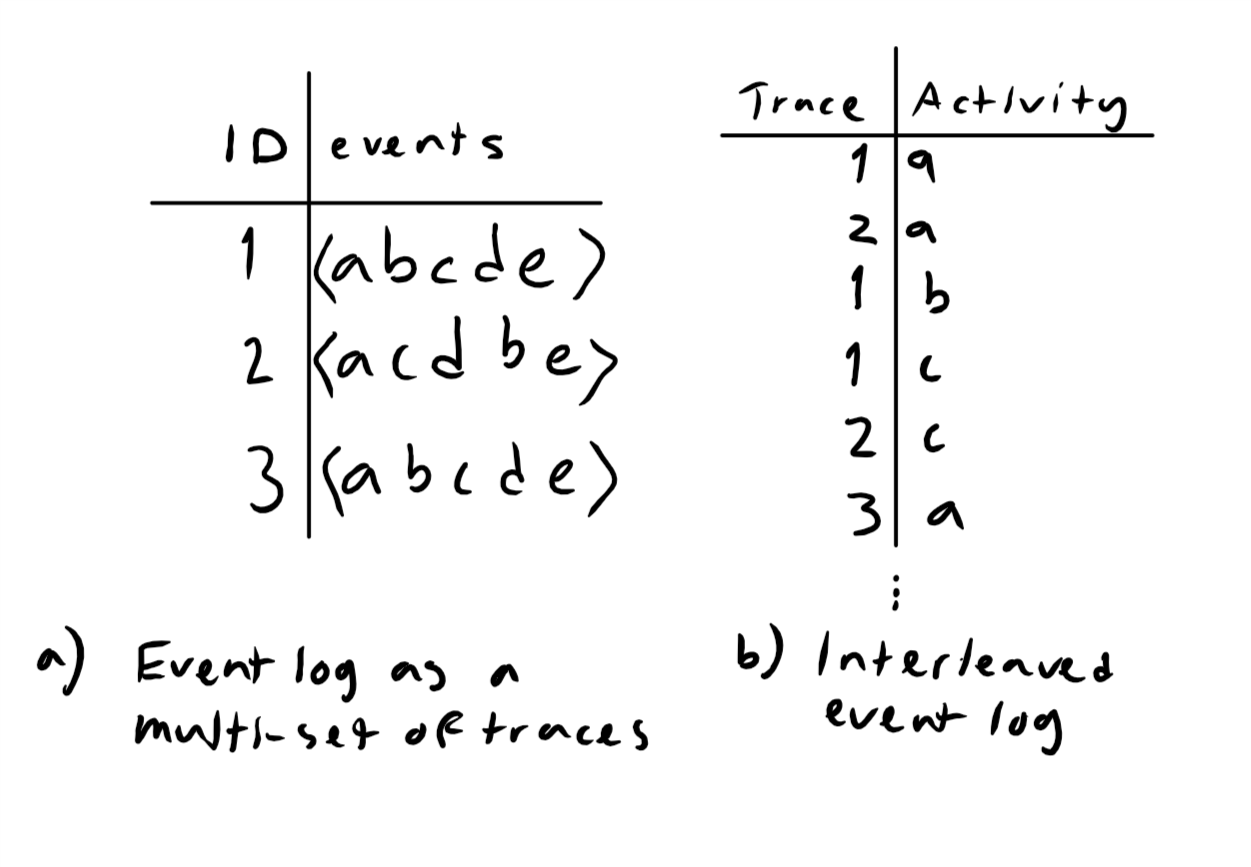 ID events
1 ⟨abcde⟩
2 ⟨acdbe⟩
3 ⟨abcde⟩
a) Event log as a
multi-set of traces
Trace Activity
1 a
2 a
1 b
1 c
2 c
3 a
⋮
b) Interleaved
event log